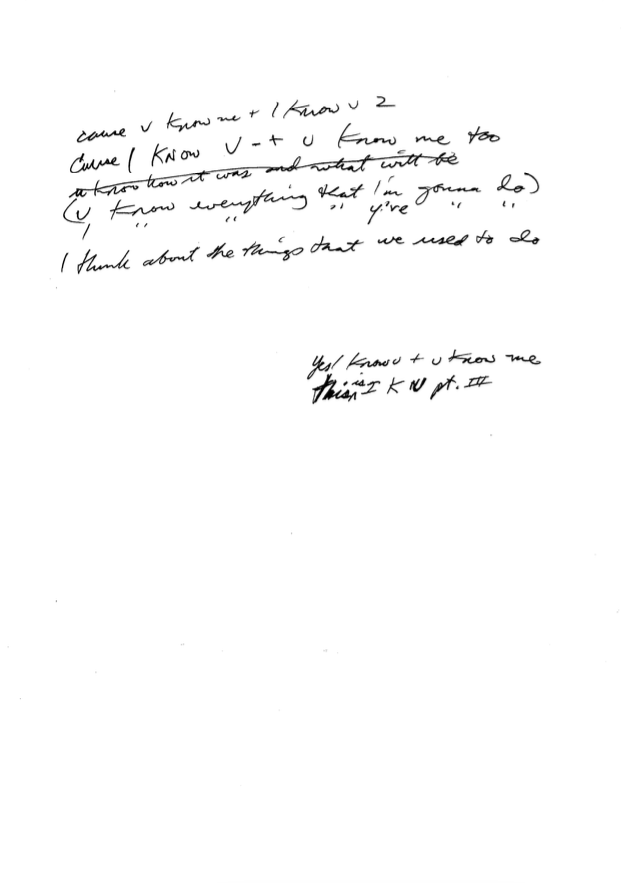 cause U know me + I know U 2
Cause I KNOW U - + U know me too
u know how it was and what will be
(U know everything that I'm gonna do)
I " " " y've " "
I think about the things that we used to do
Yes I know U + U know me
this is I K N pt. III